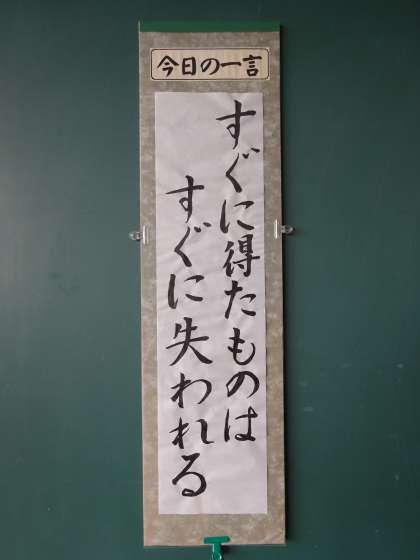 今日の一言
すぐに得たものは
すぐに失われる